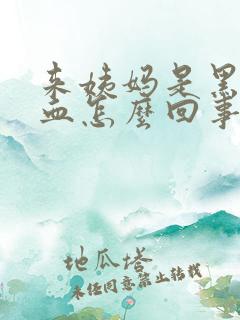 来姨妈是黑
血怎麽回事
地瓜塔
未经同意禁止转载